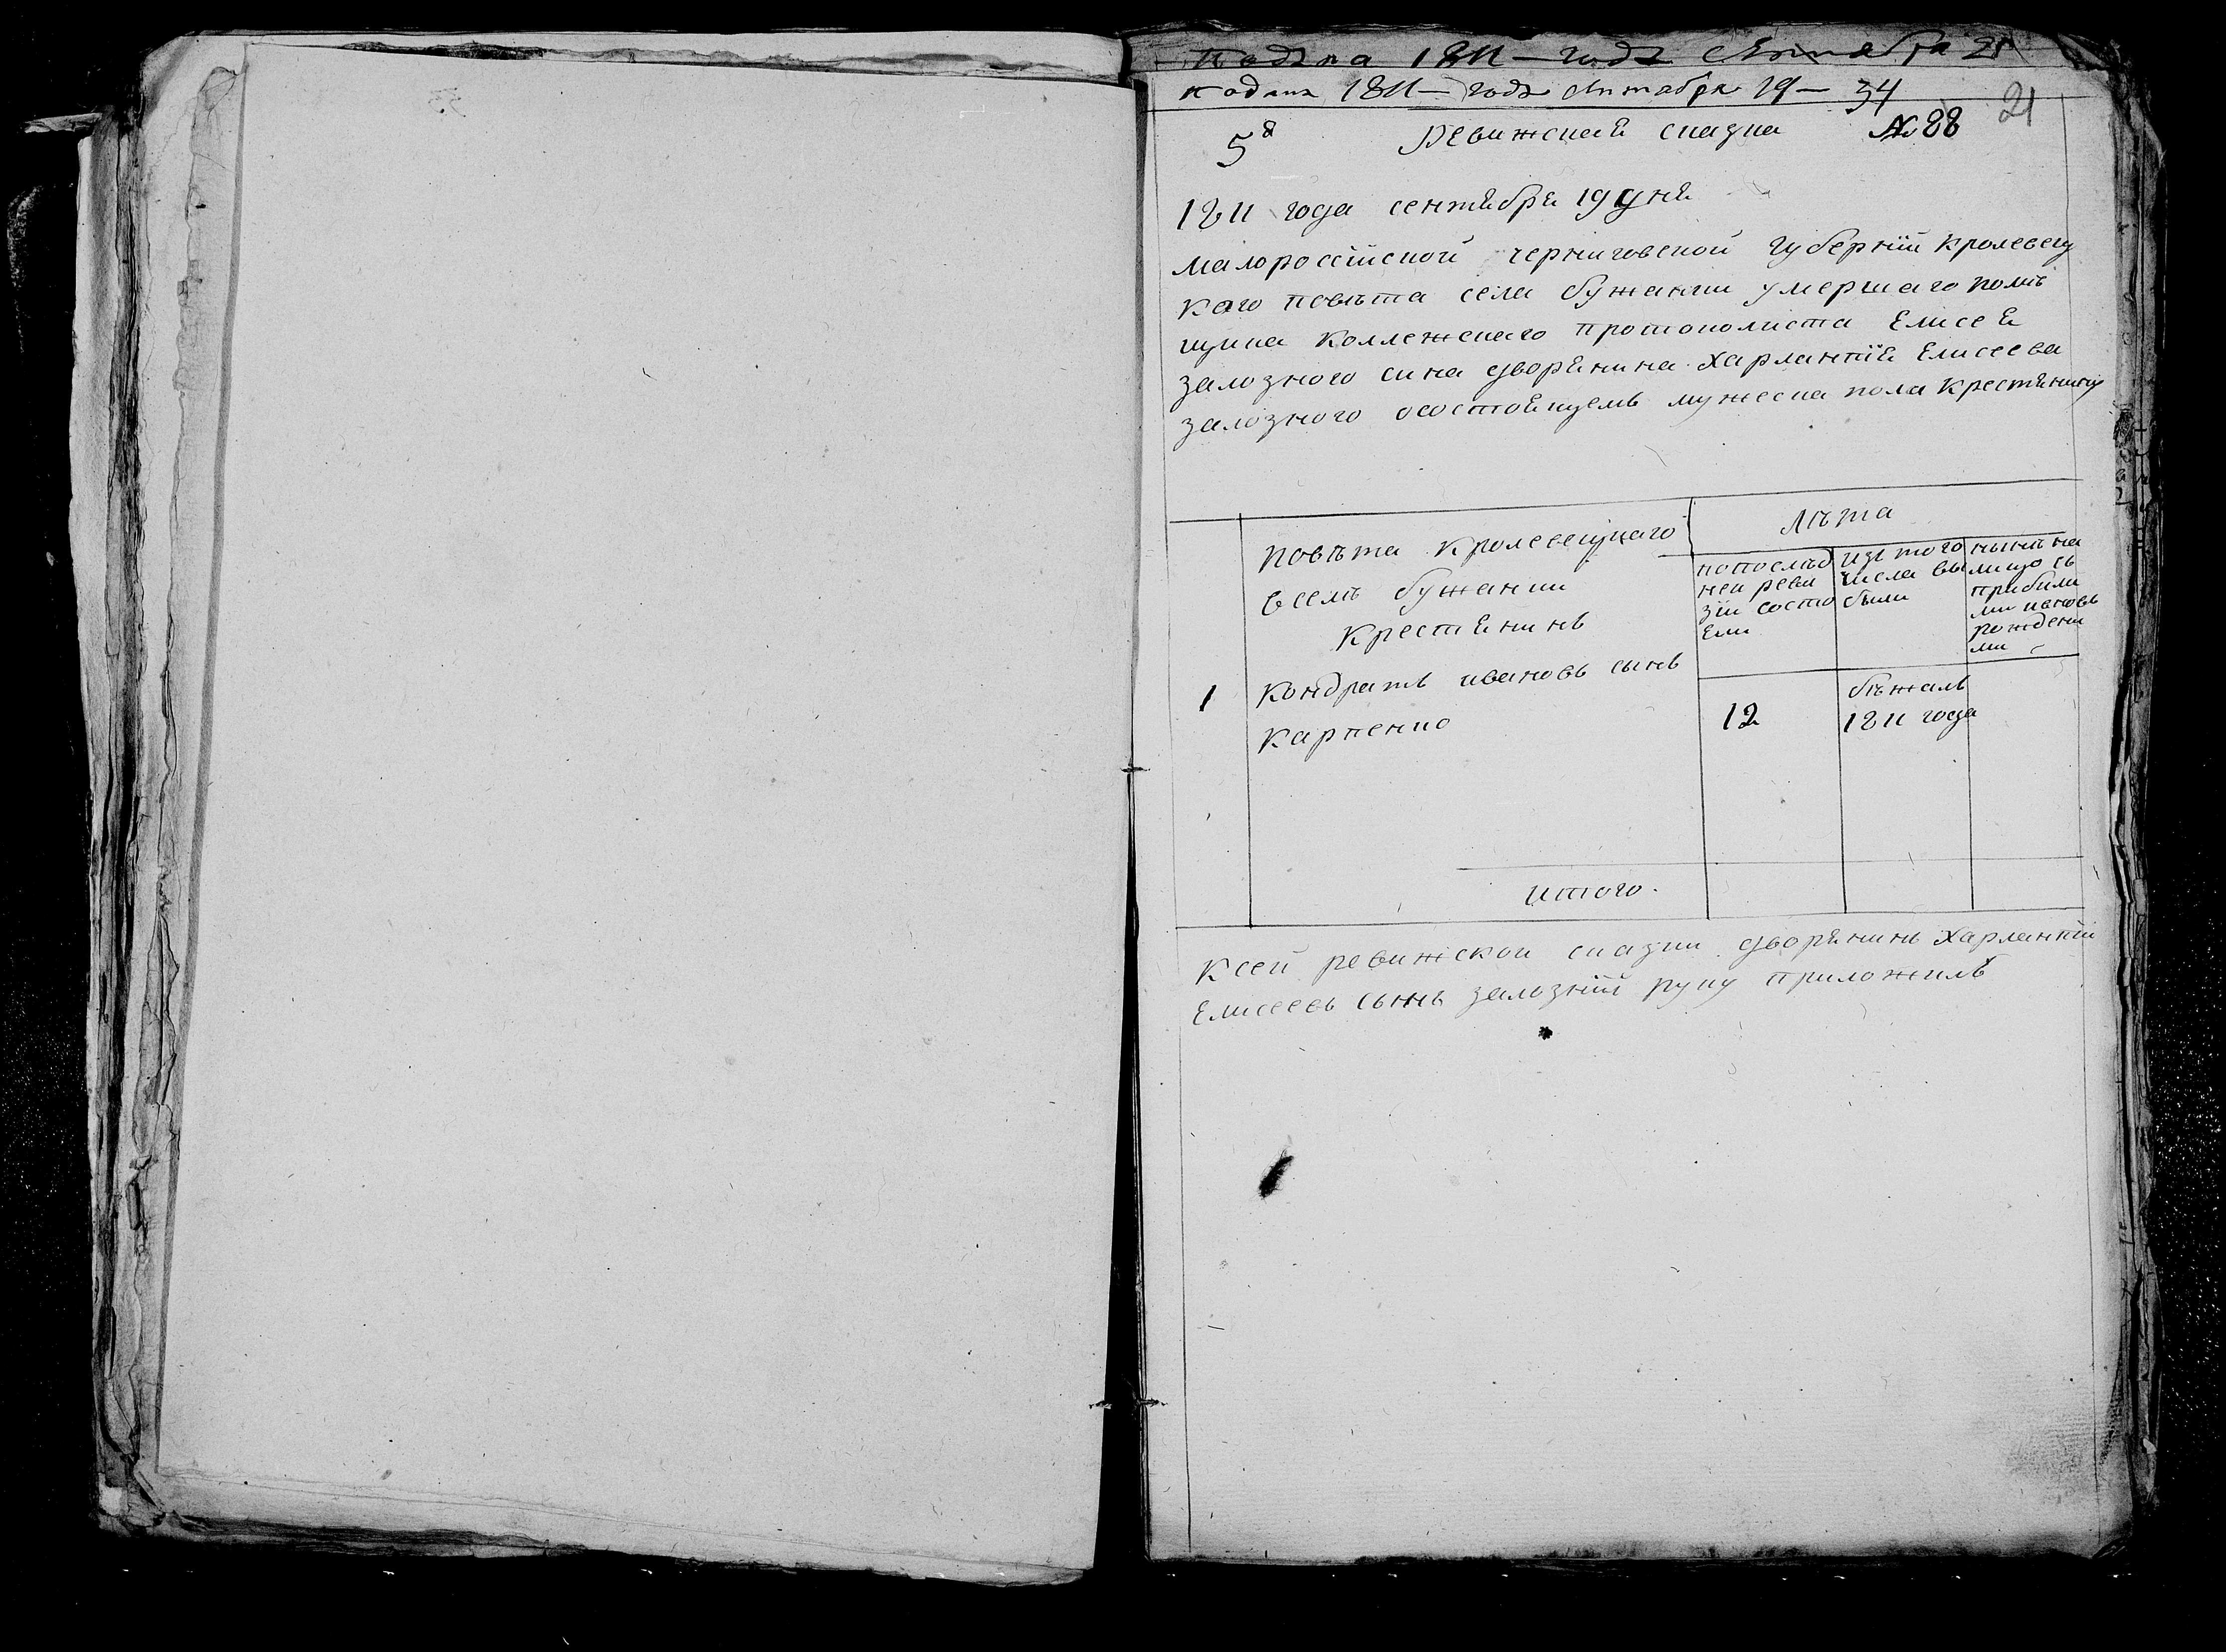 Подана 1811 — года сентября 21
подана 1811 — года сентября 19 — 34
5 8 Ревижская сказка № 88 21
1811 года сентября 19 дня
малоросіиской черниговской губерніи Кролевец
каго повѣта села бужанки умершаго помѣ
щика Коллежскаго протоколиста Елисея
залозного сина дворянина Харлантія Елисеева
залозного осостоящемъ мужеска пола крестянину
повѣта кролевецкаго
всемъ бужанки
крестянинъ
Лѣта
попослѣд
ней реви
зіи состо
яли
изъ того
числа вы
были
нынѣ на
лицо съ
прибили
ми иновь
рождени
ми
1 Кондратъ ивановъ сынъ
карпенко
12
бѣжалъ
1811 года
итого.
Ксей ревижской сказки дворянинъ Харлантій
Елисеевъ сынъ залозній руку приложилъ